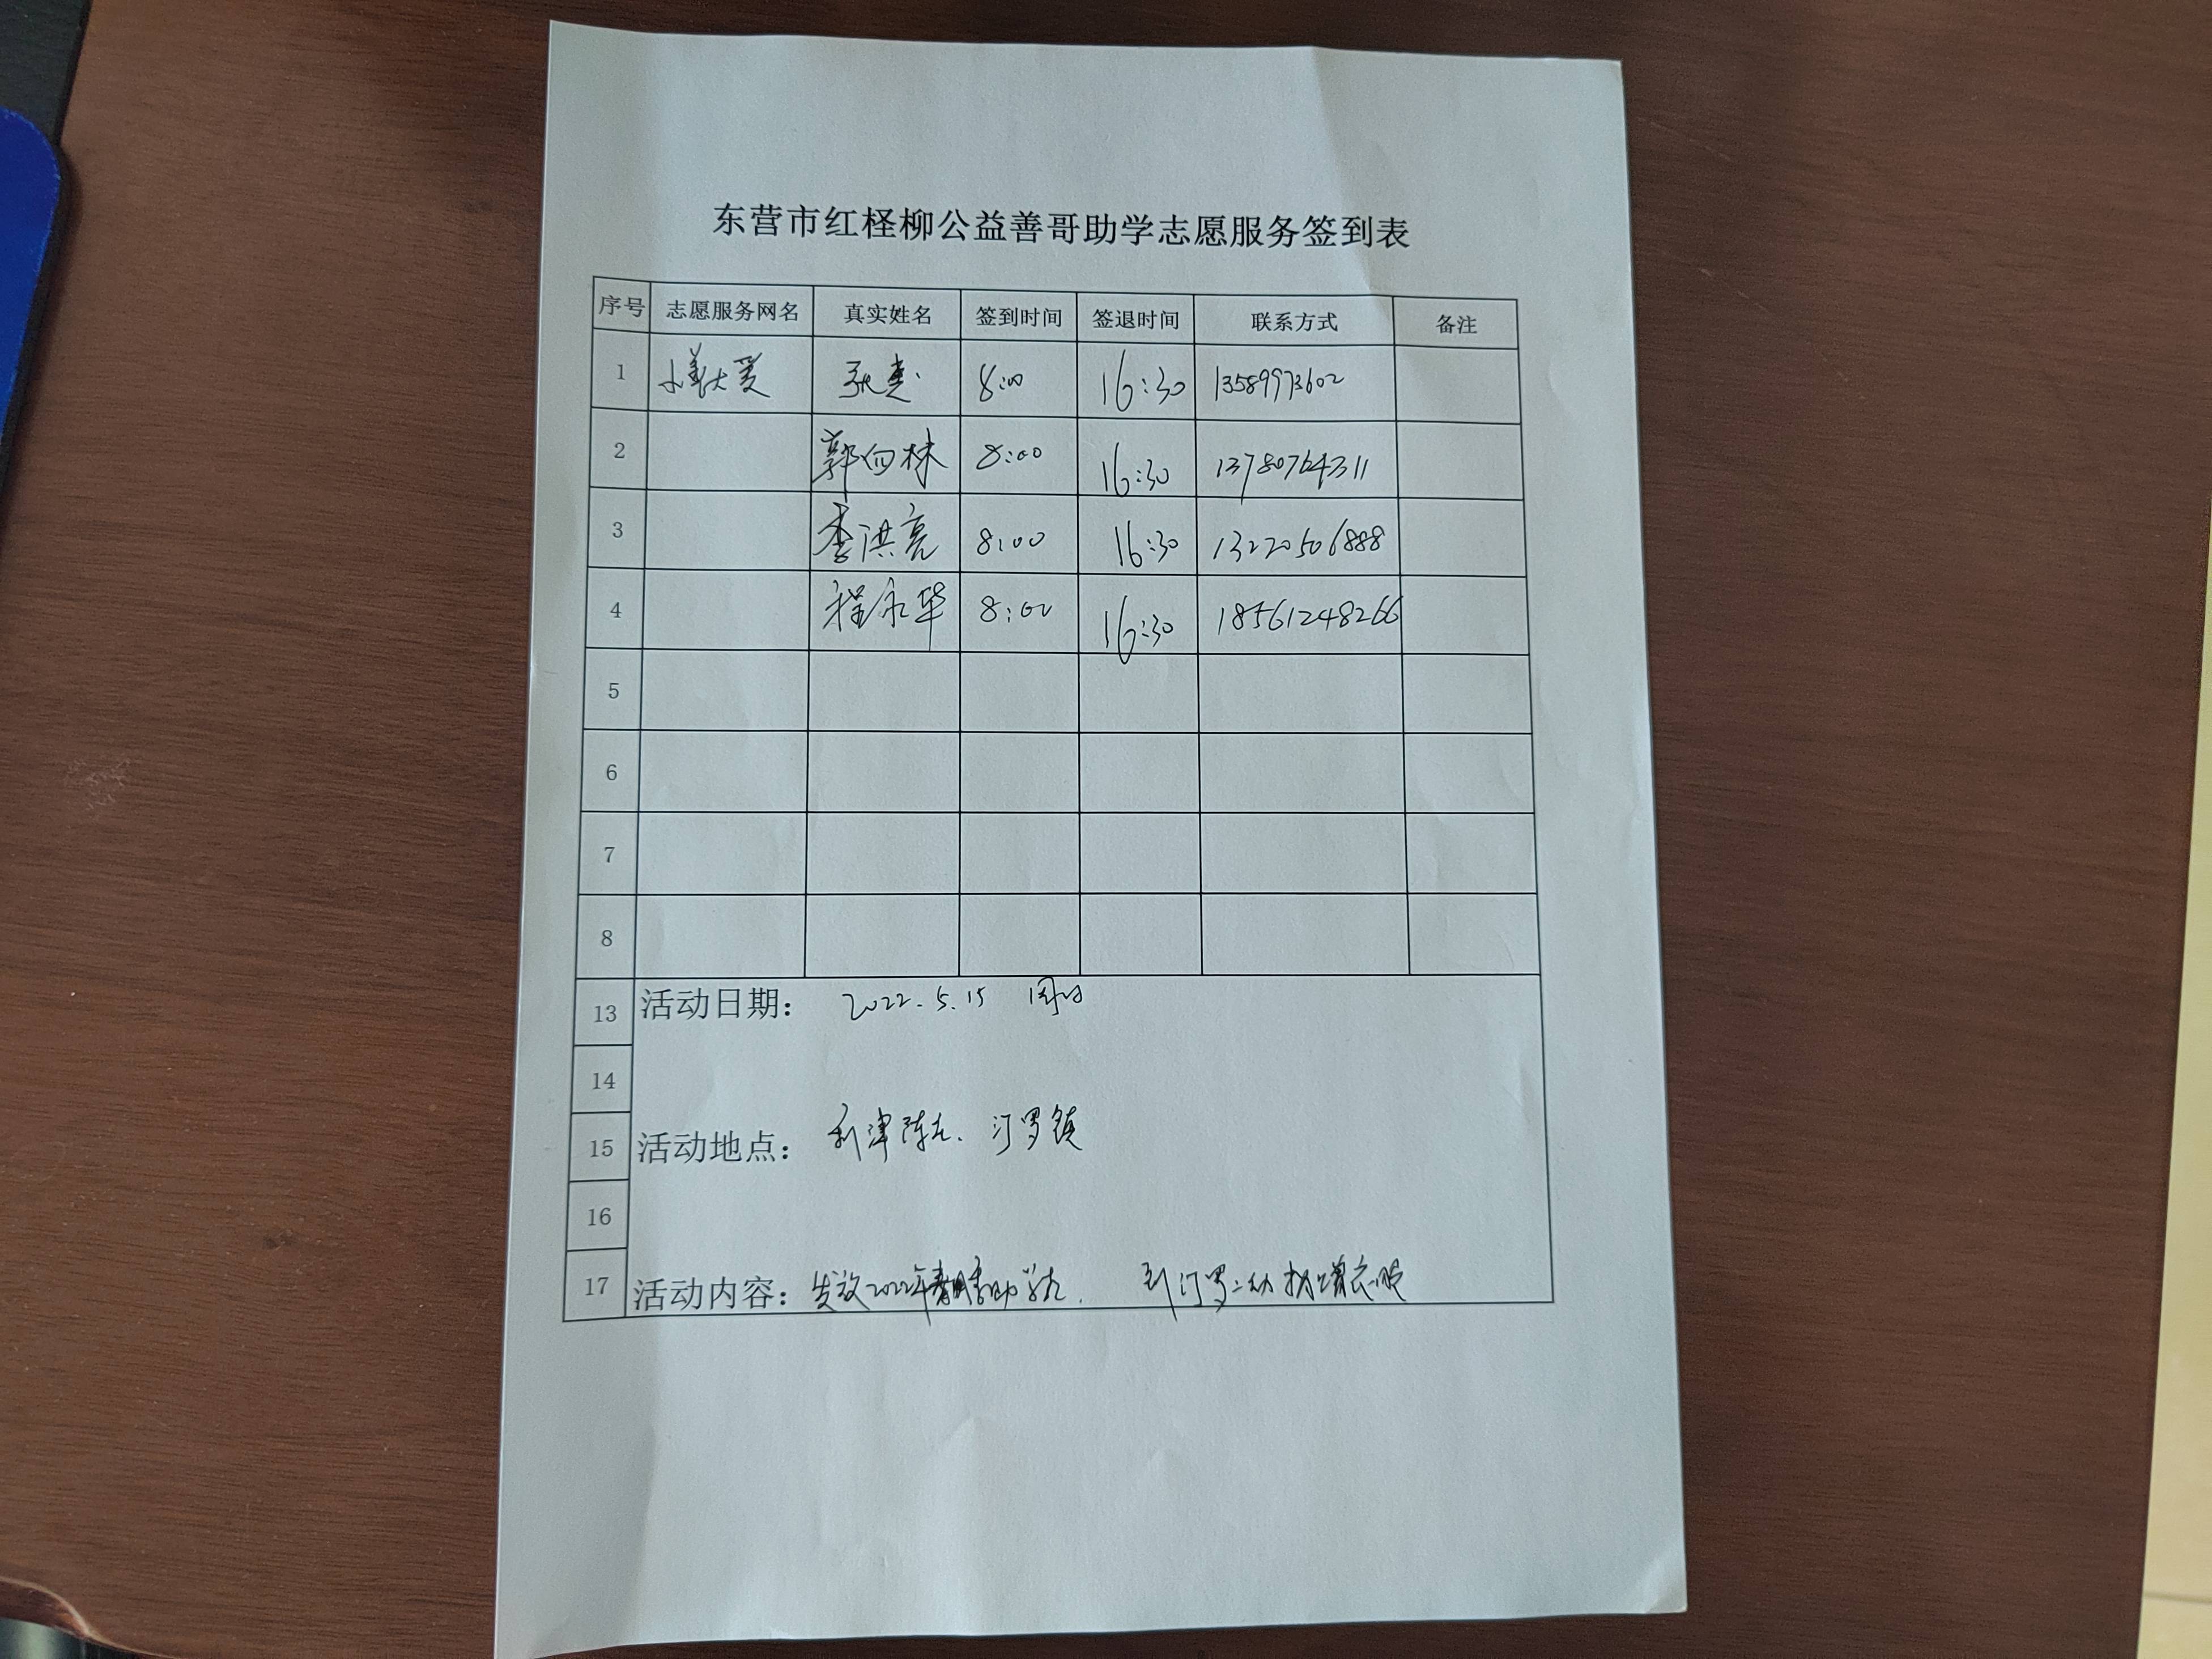 东营市红柽柳公益善哥助学志愿服务签到表
序号 志愿服务网名 真实姓名 签到时间 签退时间 联系方式 备注
1 小美大爱 张惠 8:00 16:30 13589973602
2 郭向林 8:00 16:30 13780764311
3 季洪亮 8:00 16:30 13220506888
4 程永华 8:00 16:30 18561248266
5
6
7
8
13 活动日期： 2022.5.15 周日
14
15 活动地点： 利津陈庄、汀罗镇
16
17 活动内容： 发放2022年春季助学款. 到汀罗二幼捐赠衣服